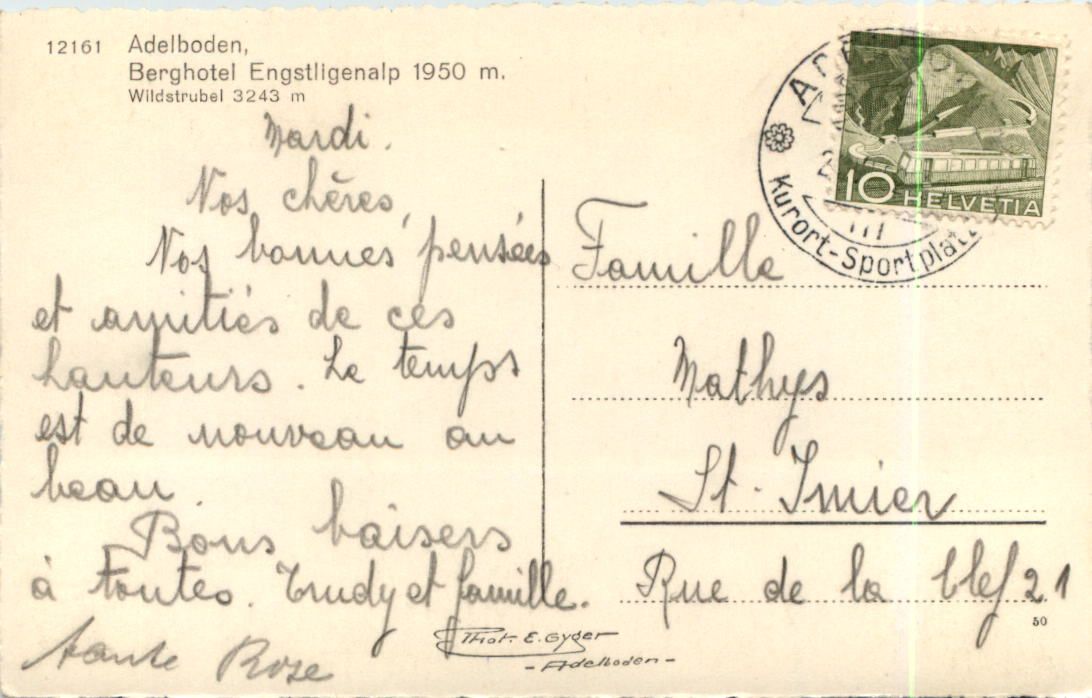 12161 Adelboden,
Berghotel Engstligenalp 1950 m.
Wildstrubel 3243 m
Mardi.
Nos chères,
Nos bonnes pensées
et amitiés de ces
hauteurs. Le temps
est de nouveau au
beau.
Bons baisers
à toutes. Trudy et famille.
tante Rose
Phot. E. Gyger
- Adelboden -
10 HELVETIA
Kurort-Sportplatz
Famille
Mathys
St-Imier
Rue de la Clef 21
50